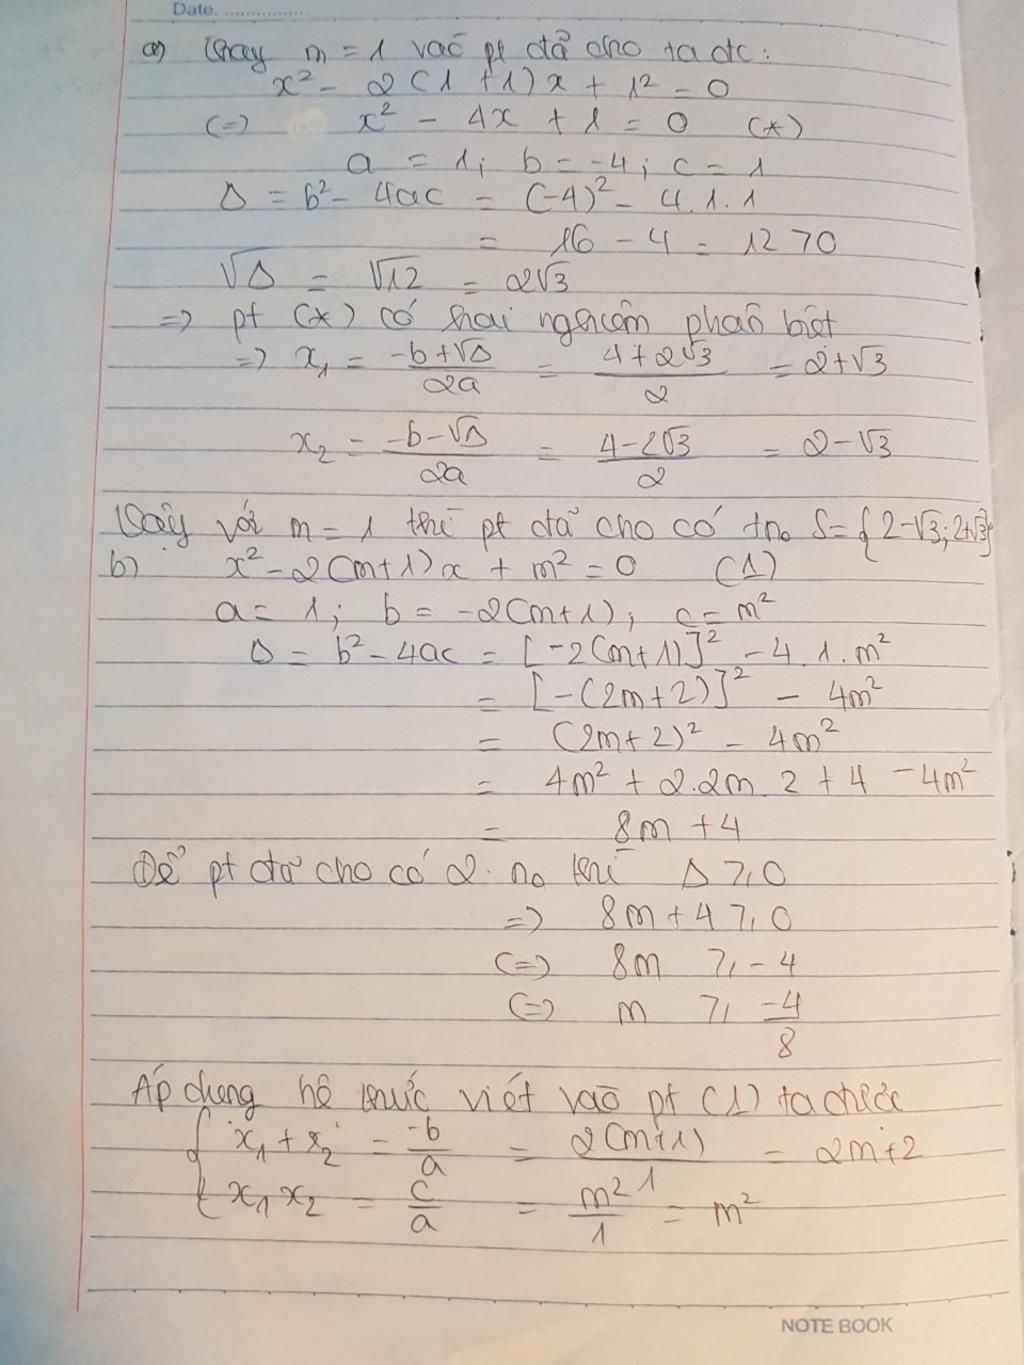 Date.
a) Thay m = 1 vào pt đã cho ta đc:
x² - 2(1+1)x + 1² = 0
(=) x² - 4x + 1 = 0 (*)
a = 1; b = -4; c = 1
Δ = b² - 4ac = (-4)² - 4.1.1
= 16 - 4 = 12 > 0
√Δ = √12 = 2√3
=> pt (*) có hai nghiệm phân biệt
=> x₁ = (-b+√Δ)/2a = (4+2√3)/2 = 2+√3
x₂ = (-b-√Δ)/2a = (4-2√3)/2 = 2-√3
Vậy với m = 1 thì pt đã cho có tno S={2-√3; 2+√3}
b) x² - 2(m+1)x + m² = 0 (1)
a = 1; b = -2(m+1); c = m²
Δ = b² - 4ac = [-2(m+1)]² - 4.1.m²
= [-(2m+2)]² - 4m²
= (2m+2)² - 4m²
= 4m² + 2.2m.2 + 4 - 4m²
= 8m + 4
Để pt đã cho có 2 no thì Δ ≥ 0
=> 8m + 4 ≥ 0
(=) 8m ≥ -4
(=) m ≥ -4/8
Áp dụng hệ thức viét vào pt (1) ta được
{ x₁ + x₂ = -b/a = 2(m+1)/1 = 2m+2
x₁x₂ = c/a = m²/1 = m²
NOTE BOOK